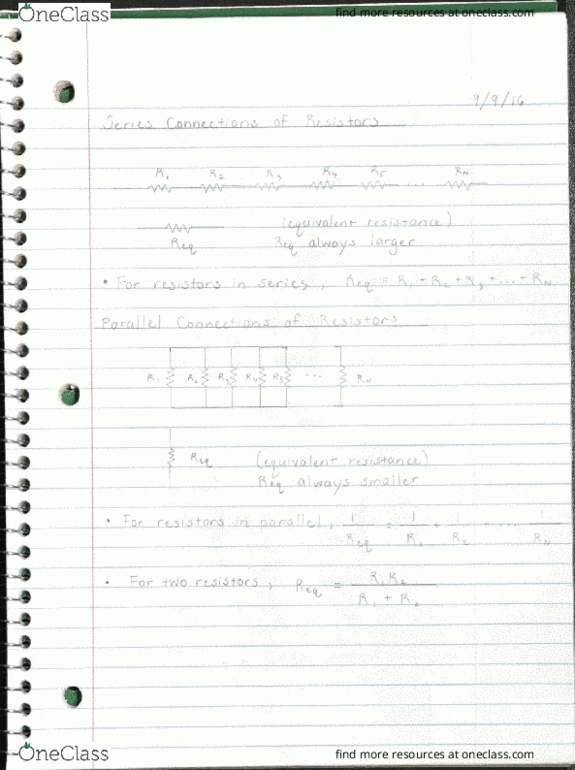 OneClass
find more resources at oneclass.com
9/9/16
Series Connections of Resistors
R₁ R₂ R₃ R₄ R₅ ... R_N
(equivalent resistance)
Req Req always larger
• For resistors in series, Req = R₁ + R₂ + R₃ + ... + R_N
Parallel Connections of Resistors
R₁ R₂ R₃ R₄ R₅ ... R_N
Req (equivalent resistance)
Req always smaller
• For resistors in parallel, 1/Req = 1/R₁ + 1/R₂ + ... 1/R_N
• For two resistors, Req = R₁R₂ / R₁ + R₂
OneClass
find more resources at oneclass.com